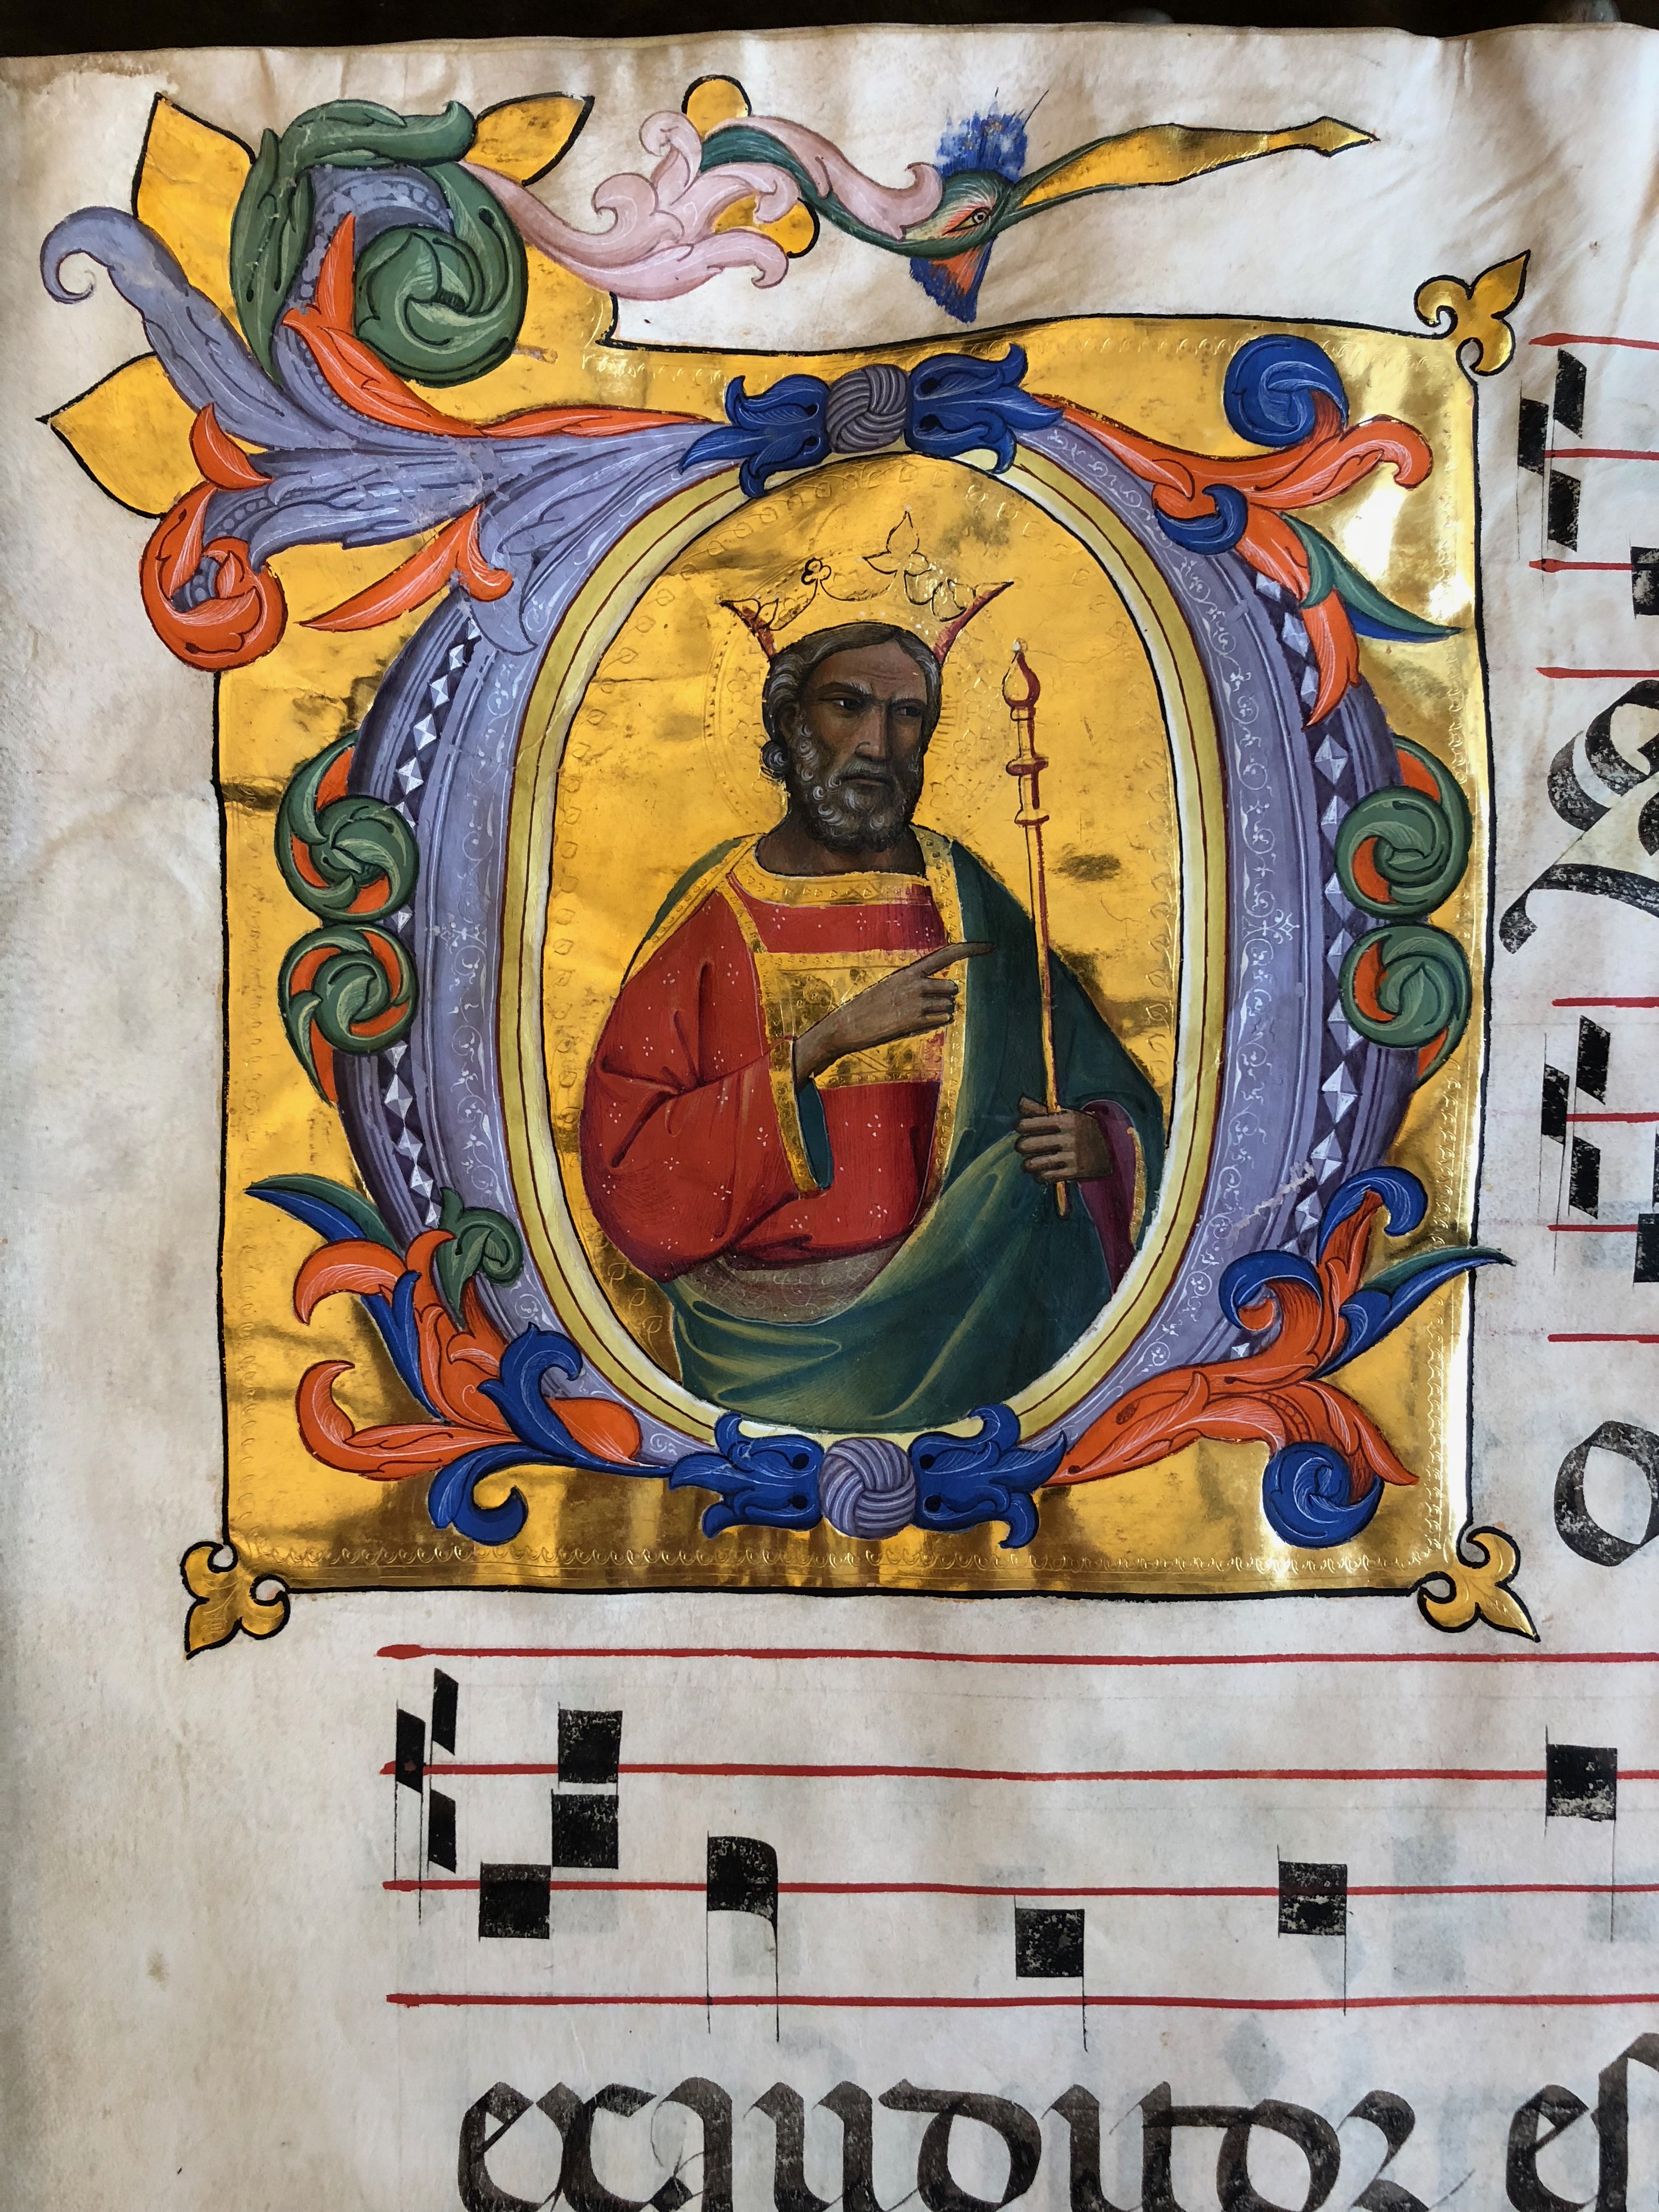 D
o
exauditor es